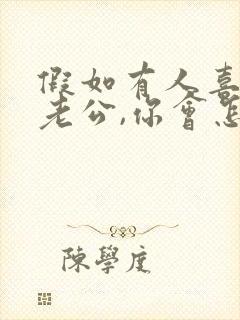 假如有人喜
老公,你會怎
陳學度